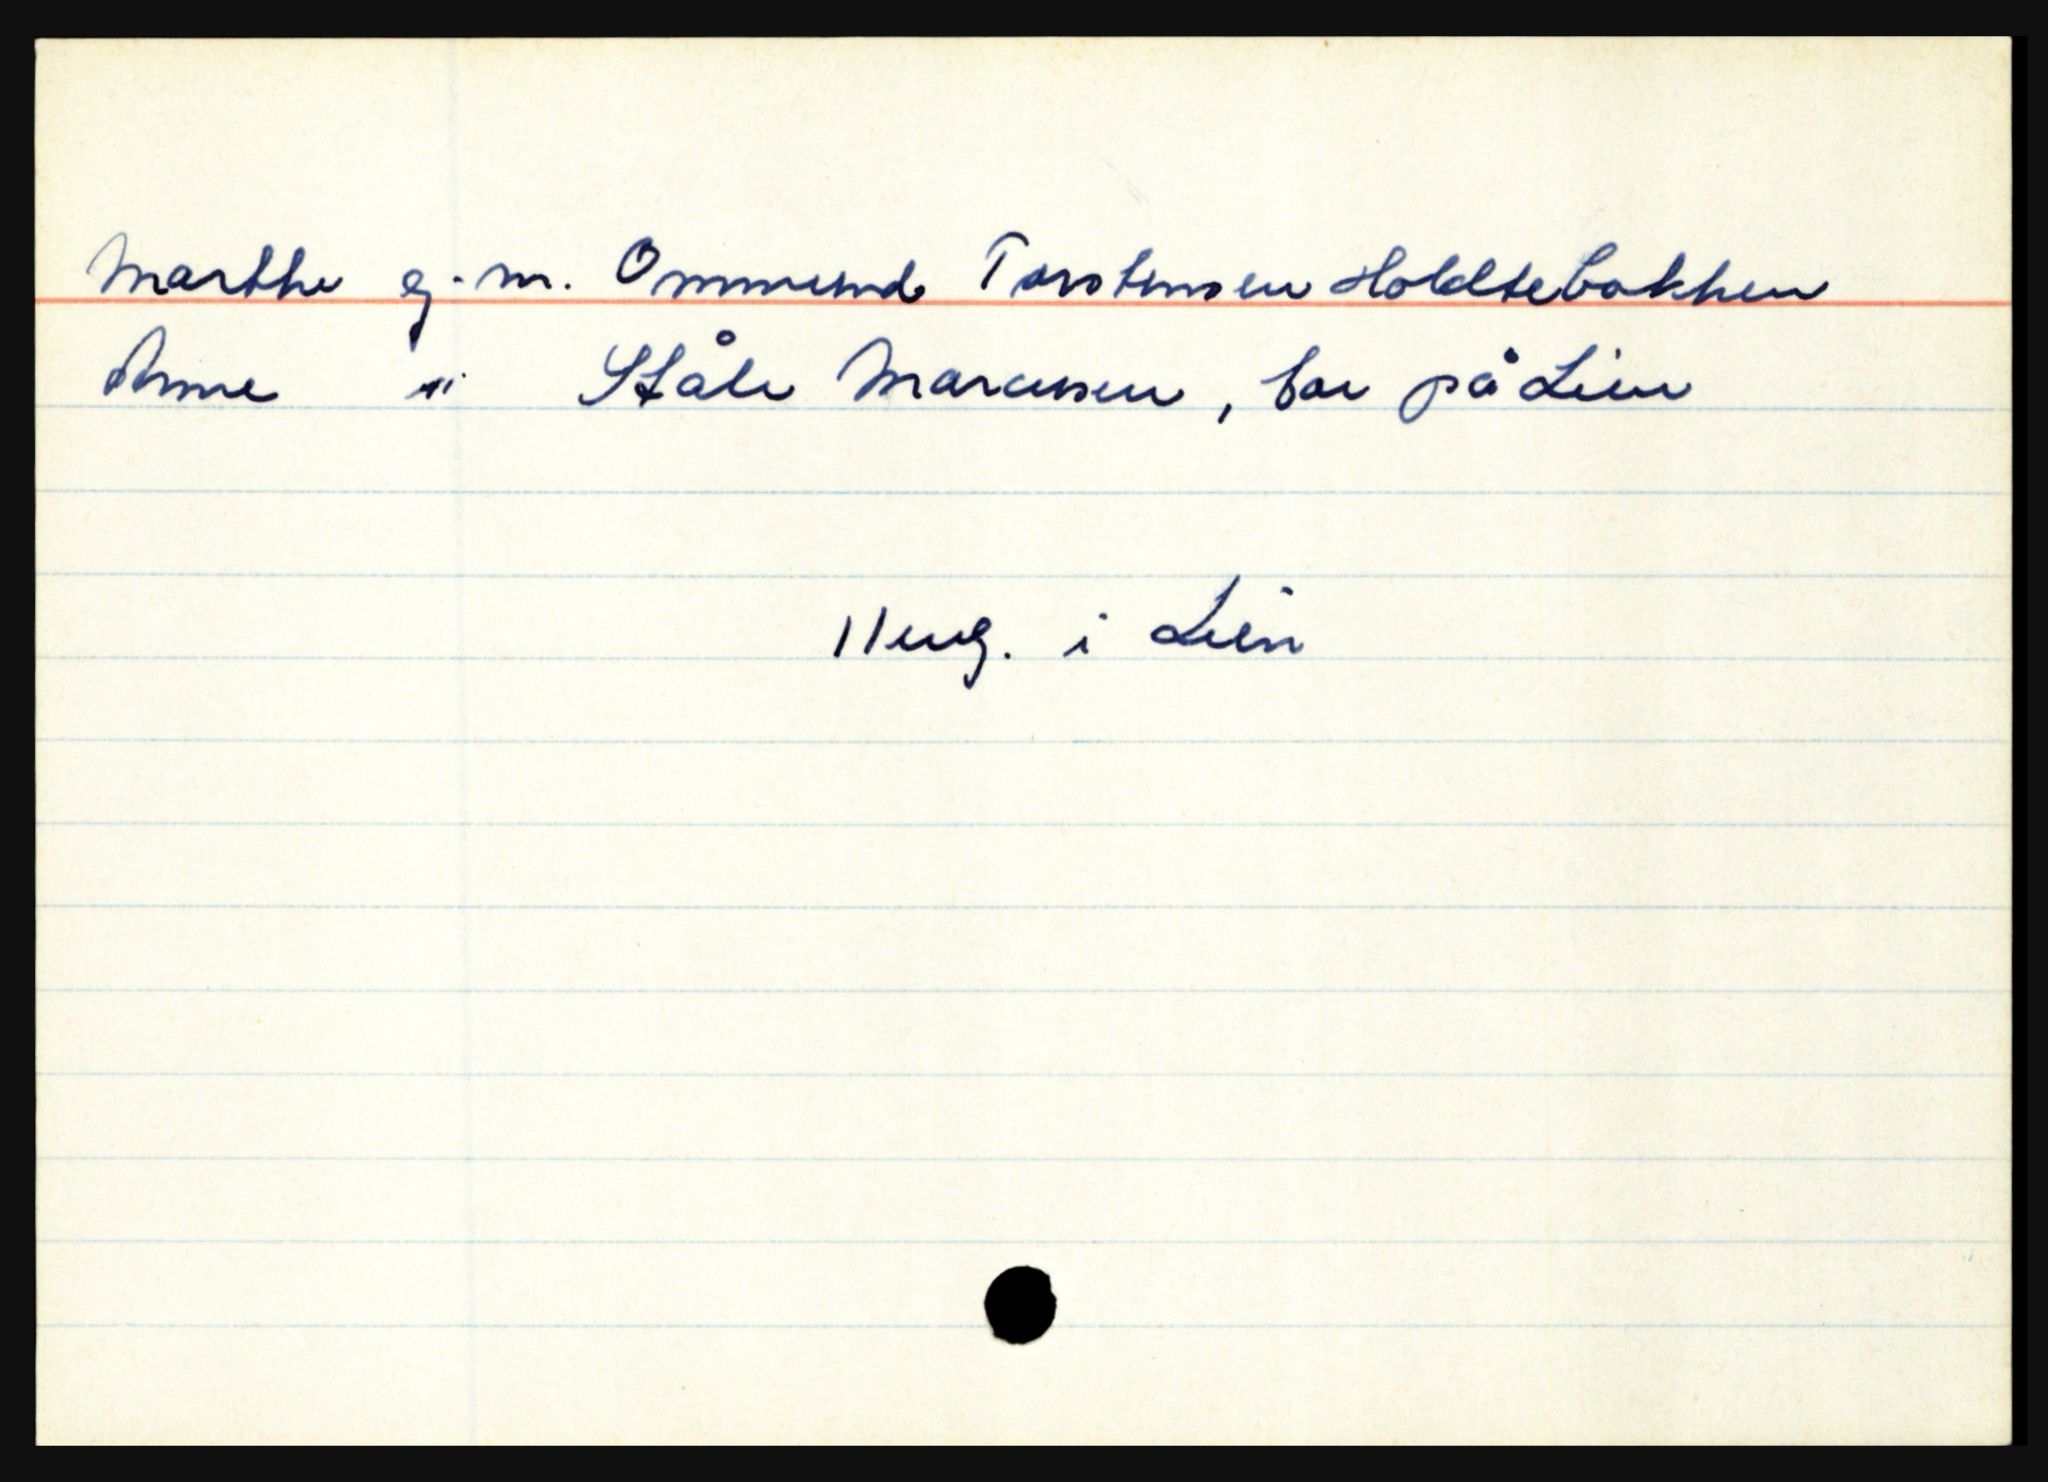 Marthe g.m. Ommund Torstensen Holdtebakken
Anne " Ståle Marcussen, bor på Lien
i Lien